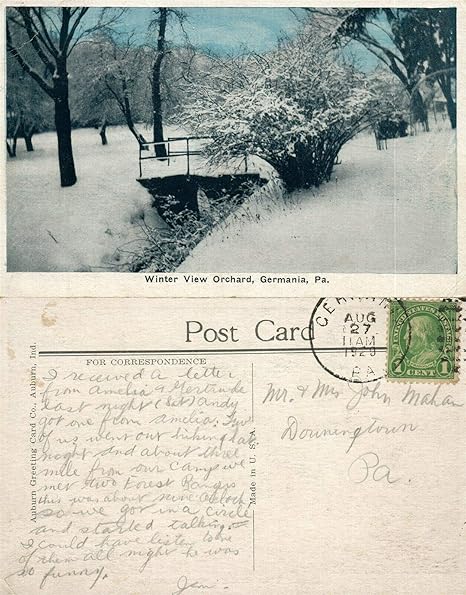 Winter View Orchard, Germania, Pa.
Post Card
GERMANIA
AUG
27
11 AM
1929
PA
UNITED STATES POSTAGE
1 CENT 1
FOR CORRESPONDENCE
Auburn Greeting Card Co., Auburn, Ind.
Made in U. S. A.
I received a letter
from Amelia & Gertrude
last night (Sat) Andy
got one from Amelia. Five
of us went out hiking late
night and about three
mile from our camp we
met two Forest Rangs
this was about nine o'clock
so we got in a circle
and started talking
I could have listen to one
of them all night he was
so funny.
Jim.
Mr. & Mrs John Mahan
Downingtown
Pa.